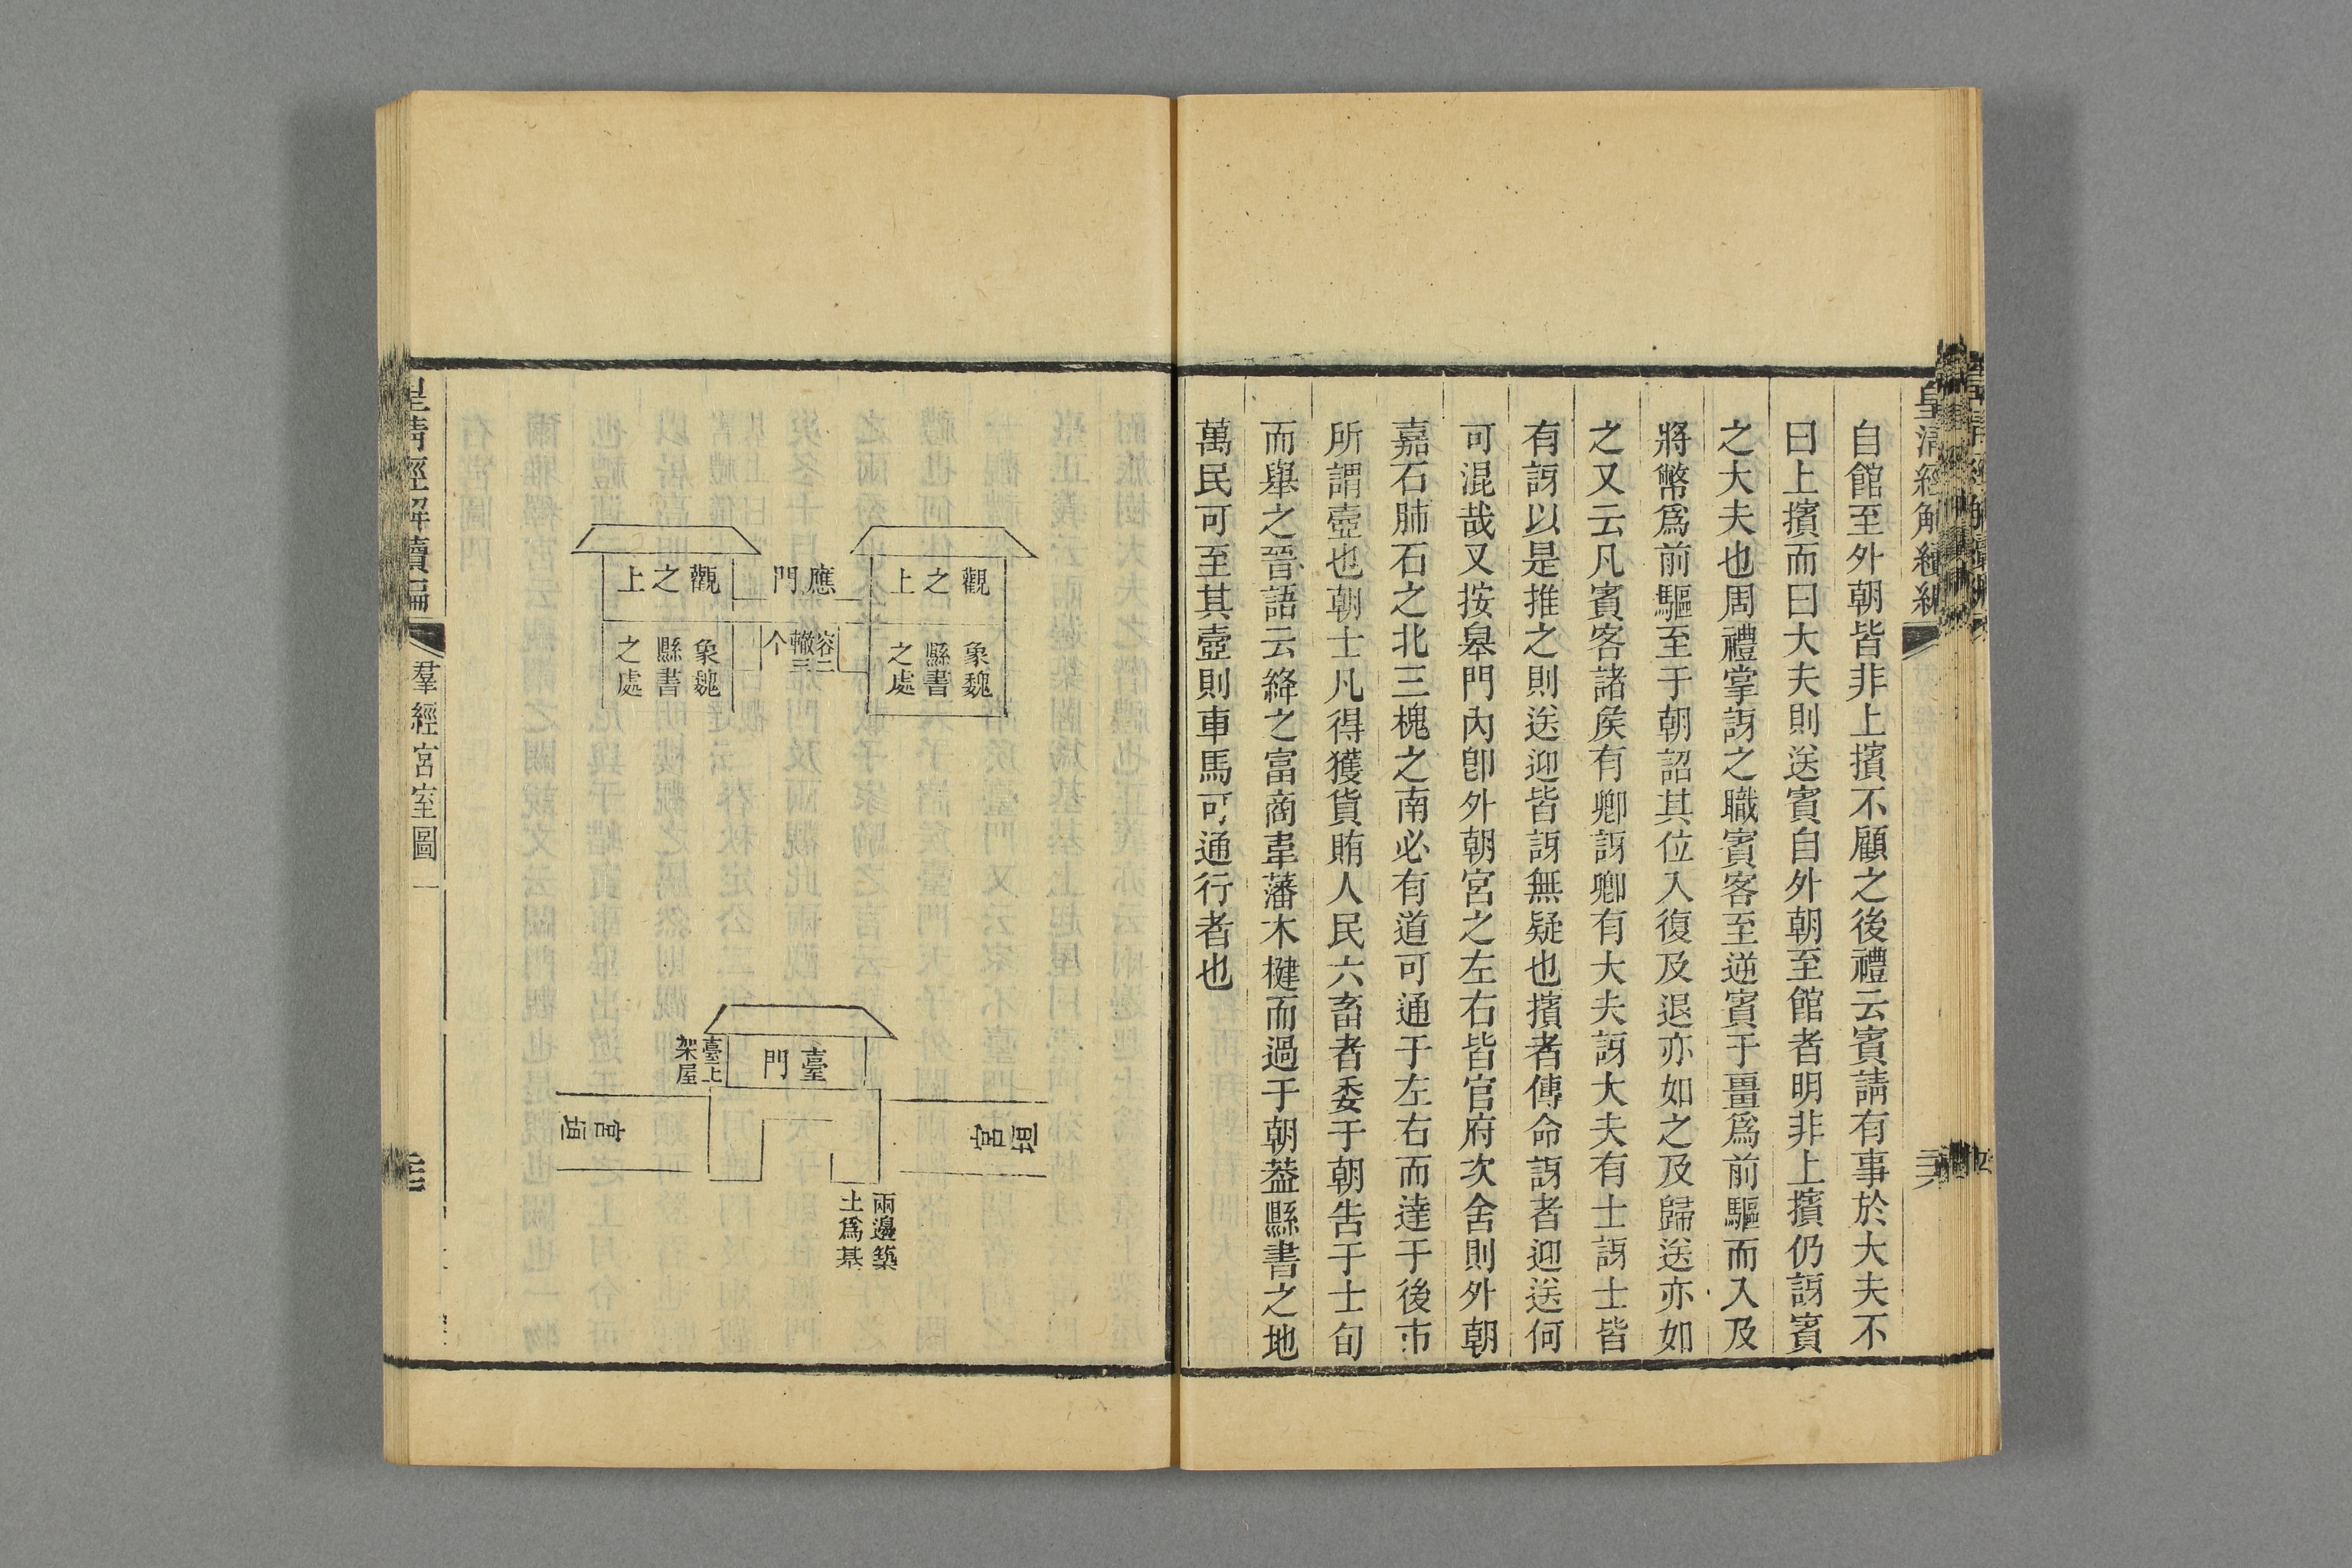 自館至外朝皆非上擯不顧之後禮云賓請有事於大夫不
曰上擯而曰大夫則送賓自外朝至館者明非上擯仍訝賓
之大夫也周禮掌訝之職賓客至逆賓于畺爲前驅而入及
將幣爲前驅至于朝詔其位入復及退亦如之及歸送亦如
之又云凡賓客諸矦有卿訝卿有大夫訝大夫有士訝士皆
有訝以是推之則送迎皆訝無疑也擯者傳命訝者迎送何
可混哉又按皋門內卽外朝宮之左右皆官府次舍則外朝
嘉石肺石之北三槐之南必有道可通于左右而達于後市
所謂壼也朝士凡得獲貨賄人民六畜者委于朝告于士旬
而舉之晉語云絳之富商韋藩木楗而過于朝葢縣書之地
萬民可至其壼則車馬可通行者也
觀之上
應門
觀之上
象魏
縣書
之處
容二
轍三
个
象魏
縣書
之處
臺門
臺上
架屋
宮垣
兩邊築
土爲基
皇清經解續編
羣經宮室圖一